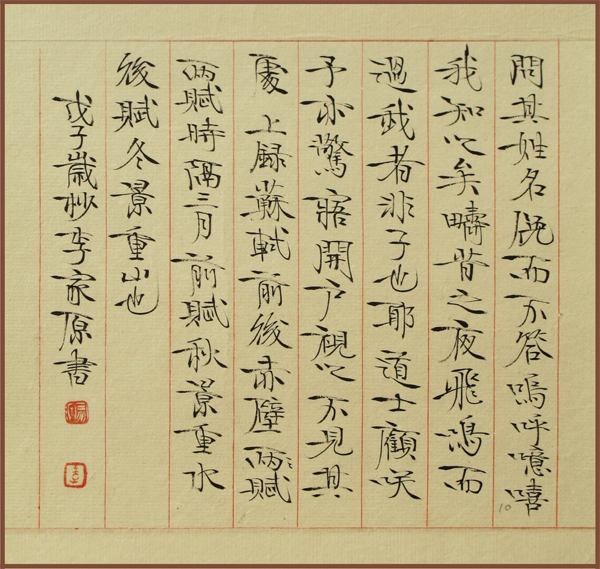 問其姓名俛而不答嗚呼噫嘻
我知之矣疇昔之夜飛鳴而
過我者非子也耶道士顧咲
予亦驚寤開户視之不見其
處 上録蘇軾前後赤壁兩賦
兩賦時隔三月前賦秋景重水
後賦冬景重山也
戊子歲杪李家原書
10